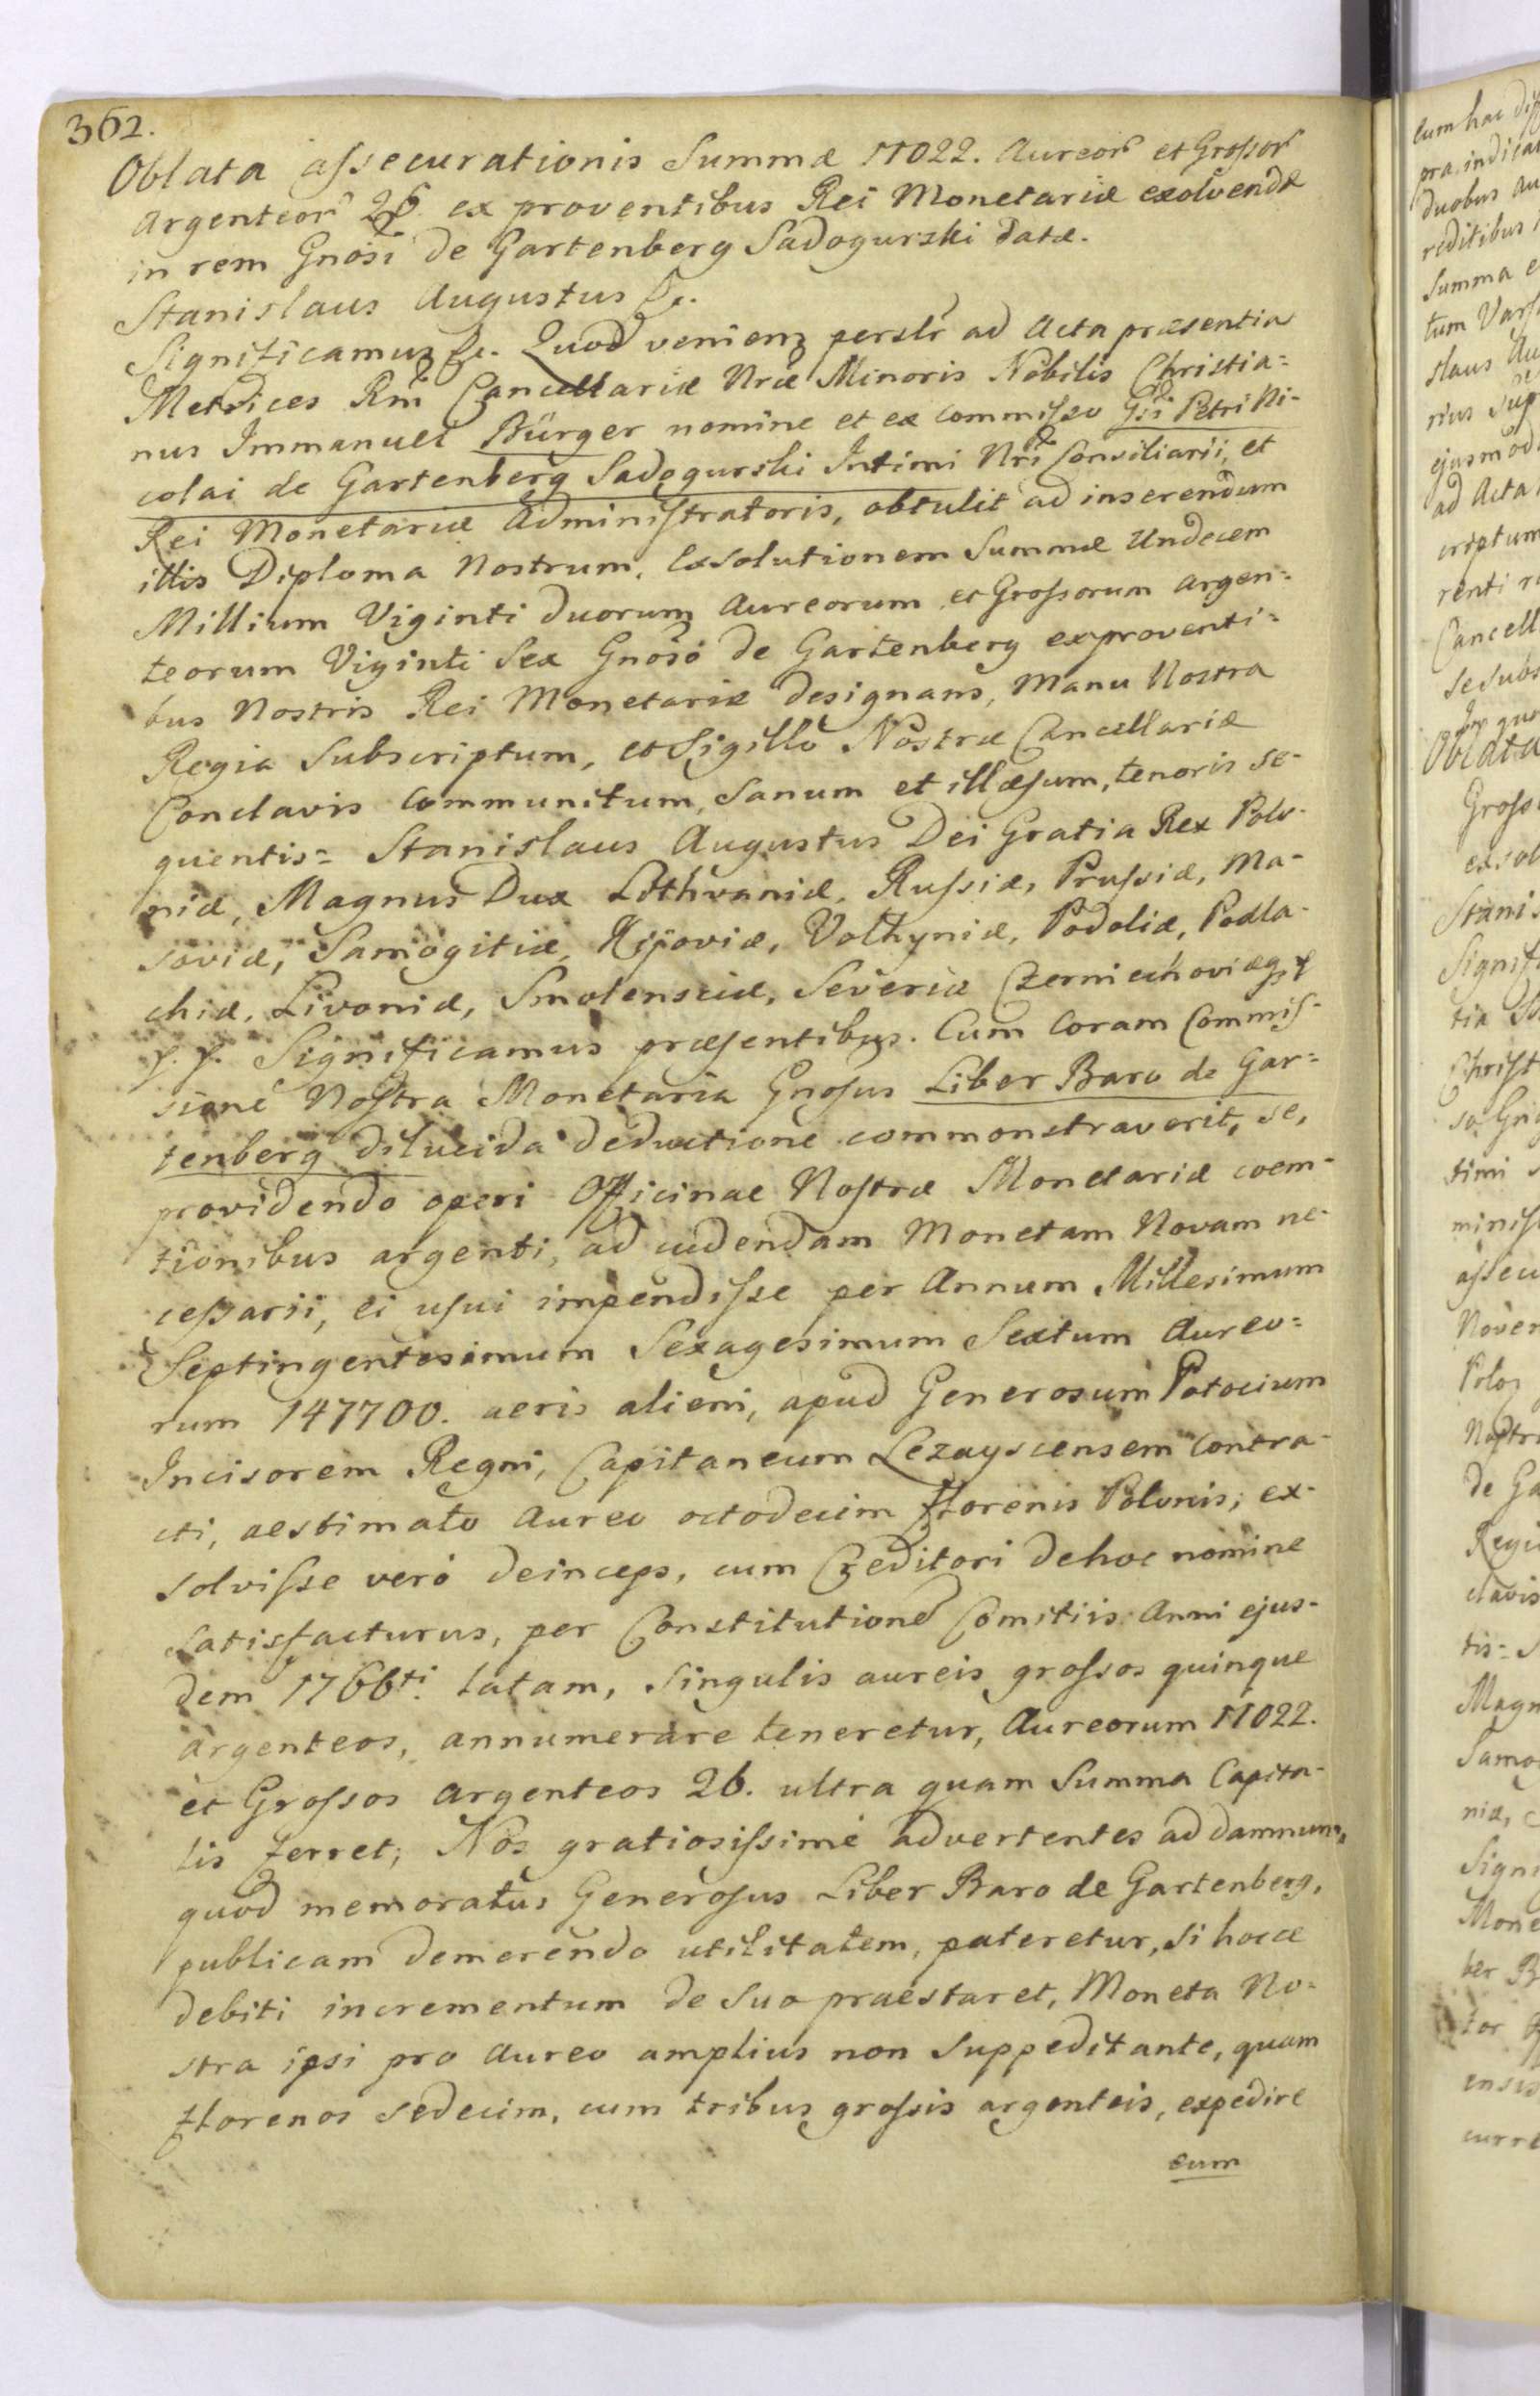 362.
Oblata assecurationis Summæ 11022. Aureor et Grossor
Argenteor 26 ex proventibus Rei Monetariæ exolvendæ
in rem Gnosi de Gartenberg Sadogurski datæ.
Stanislaus Augustus &c.
Significamus &c. Quod veniens persłr ad Acta præsentia
Metrices Rni Cancellariæ Nræ Minoris Nobilis Christia=
nus Immanuel Bürger nomine et ex commisso Gsi Petri Ni-
colai de Gartenberg Sadogurski Intimi Nri Consiliarii, et
Rei Monetariæ Administratoris, obtulit ad inserendum
illis Diploma Nostrum, Exsolutionem Summæ Undecem
Millium Viginti duorum Aureorum et Grossorum argen=
teorum Viginti Sex Gnoso de Gartenberg ex proventi=
bus Nostris Rei Monetariæ designans, Manu Nostra
Regia Subscriptum, et Sigillo Nostræ Cancellariæ
Conclavis Communitum, Sanum et illæsum, tenoris se-
quentis= Stanislaus Augustus Dei Gratia Rex Polo-
niæ, Magnus Dux Lithvaniæ, Russiæ, Prussiæ, Ma-
soviæ, Samogitiæ, Kijoviæ, Volhyniæ, Podoliæ, Podla-
chiæ, Livoniæ, Smolensciæ, Severiæ Czerniechoviæq
Significamus præsentibus. Cum Coram Commis-
sione Nostra Monetaria Gnosus Liber Baro de Gar=
tenberg dilucida deductione commonstraverit, se,
providendo operi Officinae Nostræ Monetariæ coem-
tionibus argenti, ad cudendam Monetam Novam ne-
cessarii, ei usui impendisse per Annum Millesimum
Septingentesimum Sexagesimum Sextum Aureo=
rum 147700. aeris alieni, apud Generosum Potocium
Incisorem Regni, Capitaneum Lezayscensem Contra-
cti, aestimato Aureo octodecim florenis Polonis; ex-
solvisse verò deinceps, cum Creditori dehoc nomine
satisfacturus, per Constitutionē Comitiis Anni ejus-
dem 1766ti latam, Singulis aureis grossos quinque
argenteos, annumerare teneretur, Aureorum 11022.
et Grossos argenteos 26. ultra quam Summa Capita-
lis ferret; Nos gratiosissimè advertentes ad damnum,
quod memoratus Generosus Liber Baro de Gartenberg,
publicam demerendo utilitatem, pateretur, si hocce
debiti incrementum de Suo praestaret, Moneta No-
stra ipsi pro Aureo amplius non Suppeditante, quam
florenos sedecim, cum tribus grossis argenteis, expedire
eum
cum hac
pra indica
duobus au
reditibus
Summa e
tum Vars
slaus Au
ejusmod
ad Acta
criptum
renti
Cancell
se subs
Oblata
Gross
exsol
Stanis
Signif
tia
Christ
timi
minis
assecu
Novem
Nostr
de Ga
Regi
clavis
tis=
Magn
Samo
niæ,
Signi
Mone
ber B
tor
curre